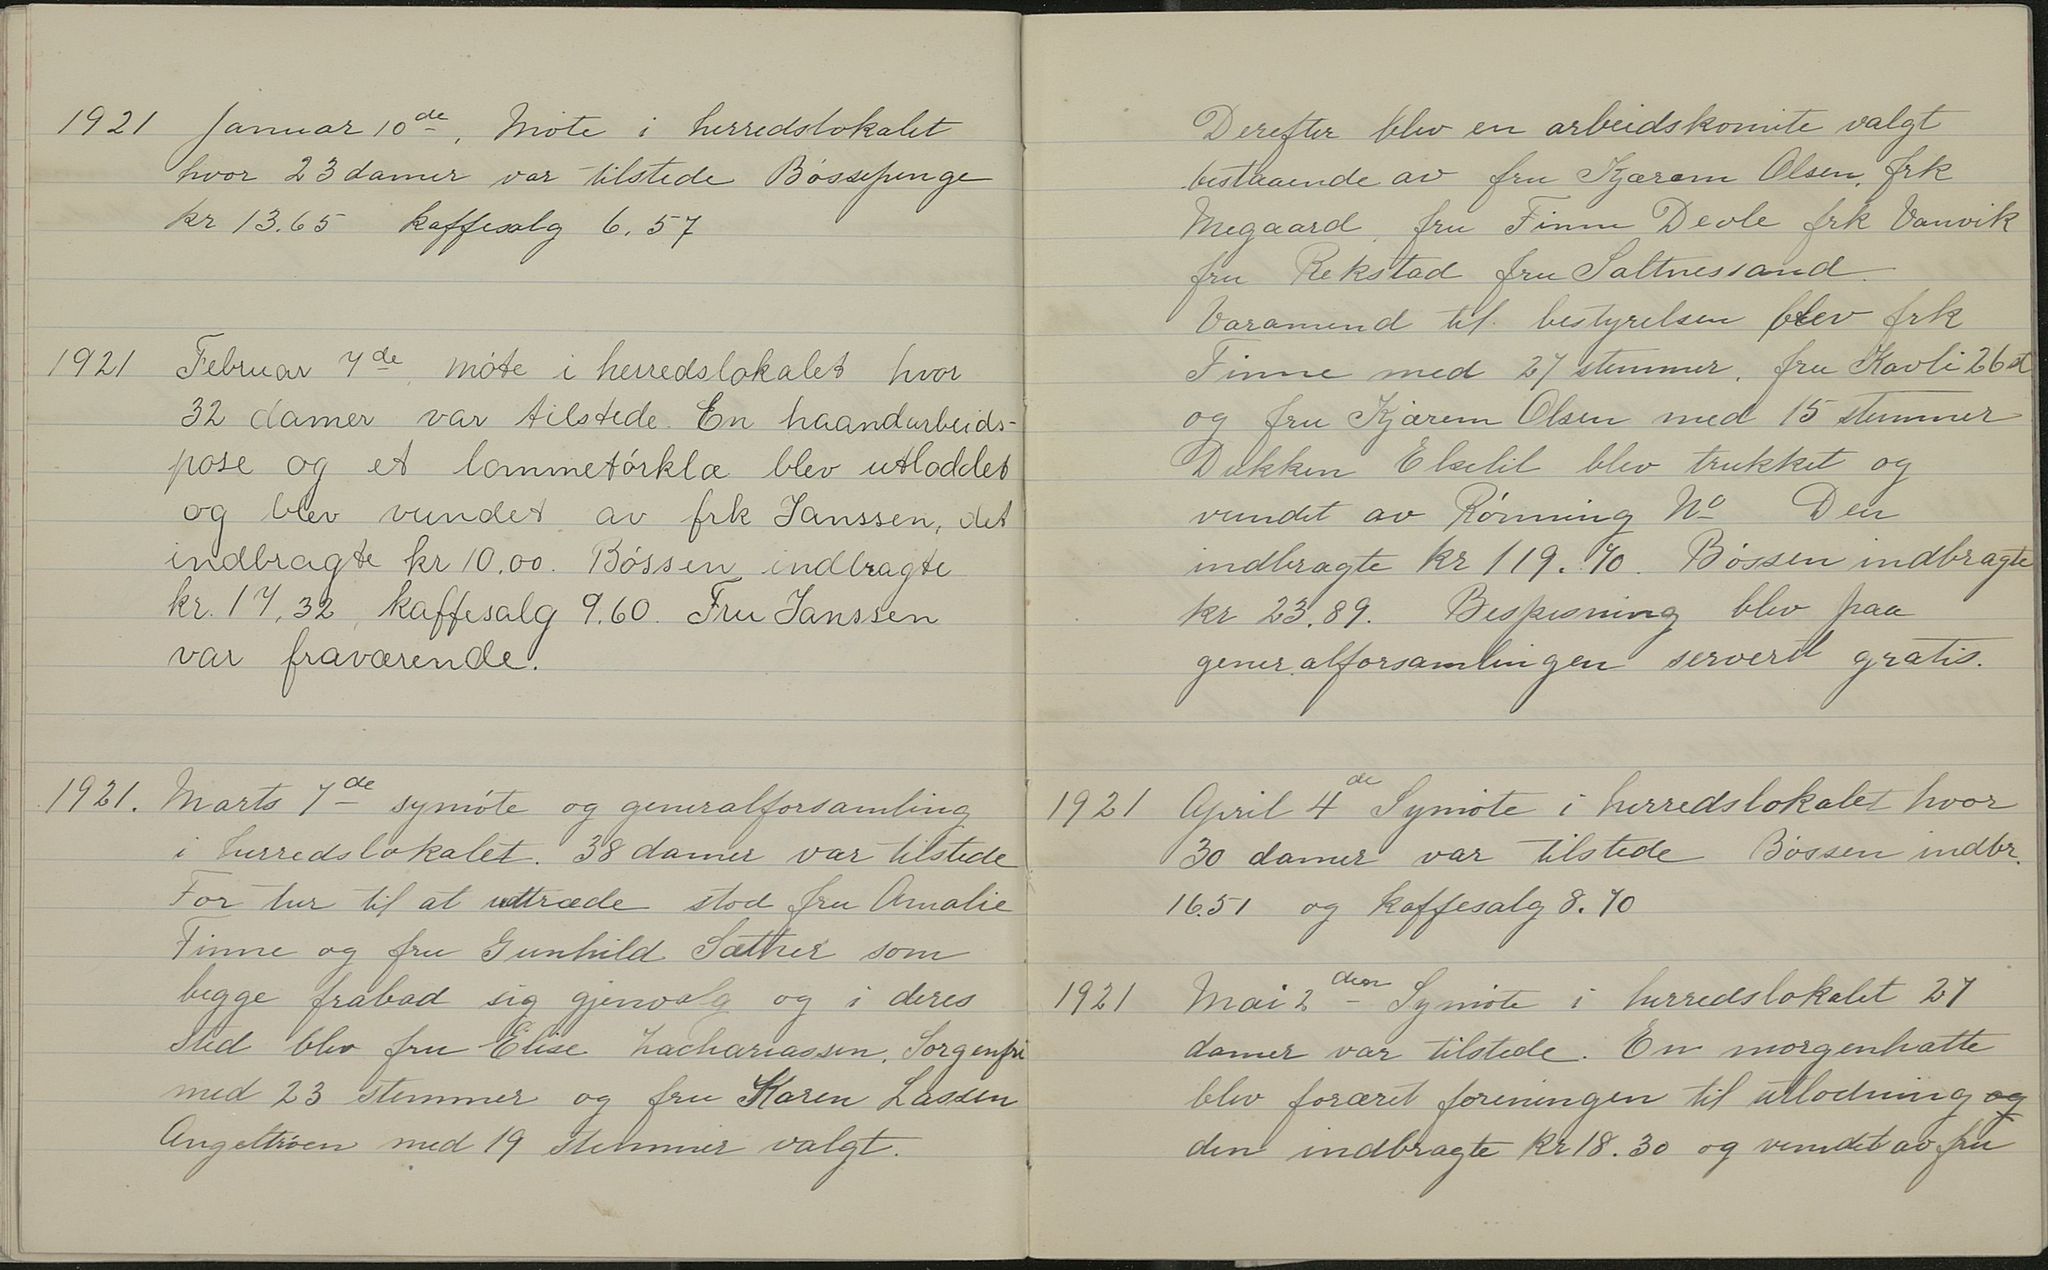 1921 Januar 10de, Møte i herredslokalet
hvor 23 damer var tilstede Bøssepenge
kr 13.65 kaffesalg 6.57
1921 Februar 7de, møte i herredslokalet hvor
32 damer var tilstede. En haandarbeids-
pose og et lommetørklæ blev utloddet
og blev vundet av frk Janssen, det
indbragte kr 10,00. Bøssen indbragte
kr. 17,32, kaffesalg 9.60. Fru Janssen
var fraværende.
1921. Marts 7de symøte og generalforsamling
i herredslokalet. 38 damer var tilstede
For tur til at uttræde stod fru Amalie
Finne og fru Gunhild Sæther som
begge frabad sig gjenvalg og i deres
sted blev fru Elise Zachariassen, Sorgenfri
med 23 stemmer og fru Karen Lassen
Angeltrøen med 19 stemmer valgt.
Derefter blev en arbeidskomite valgt
bestaaende av fru Kjærem Olsen, frk
Megaard, fru Finne Devle frk Vanvik
fru Rekstad fru Saltnessand
Varamend til bestyrelsen blev frk
Finne med 27 stemmer, fru Kavli 26 st
og fru Kjærem Olsen med 15 stemmer
Dukken Elselil blev trukket og
vundet av Rønning No Den
indbragte kr 119.70. Bøssen indbragte
kr 23.89. Bespisning blev paa
generalforsamlingen servert gratis.
1921 April 4de Symøte i herredslokalet hvor
30 damer var tilstede Bøssen indbr.
16.51 og kaffesalg 8.70
1921 Mai 2den Symøte i herredslokalet 27
damer var tilstede. En morgenhatte
blev foræret foreningen til utlodning og
den indbragte kr 18.30 og vundet av fru